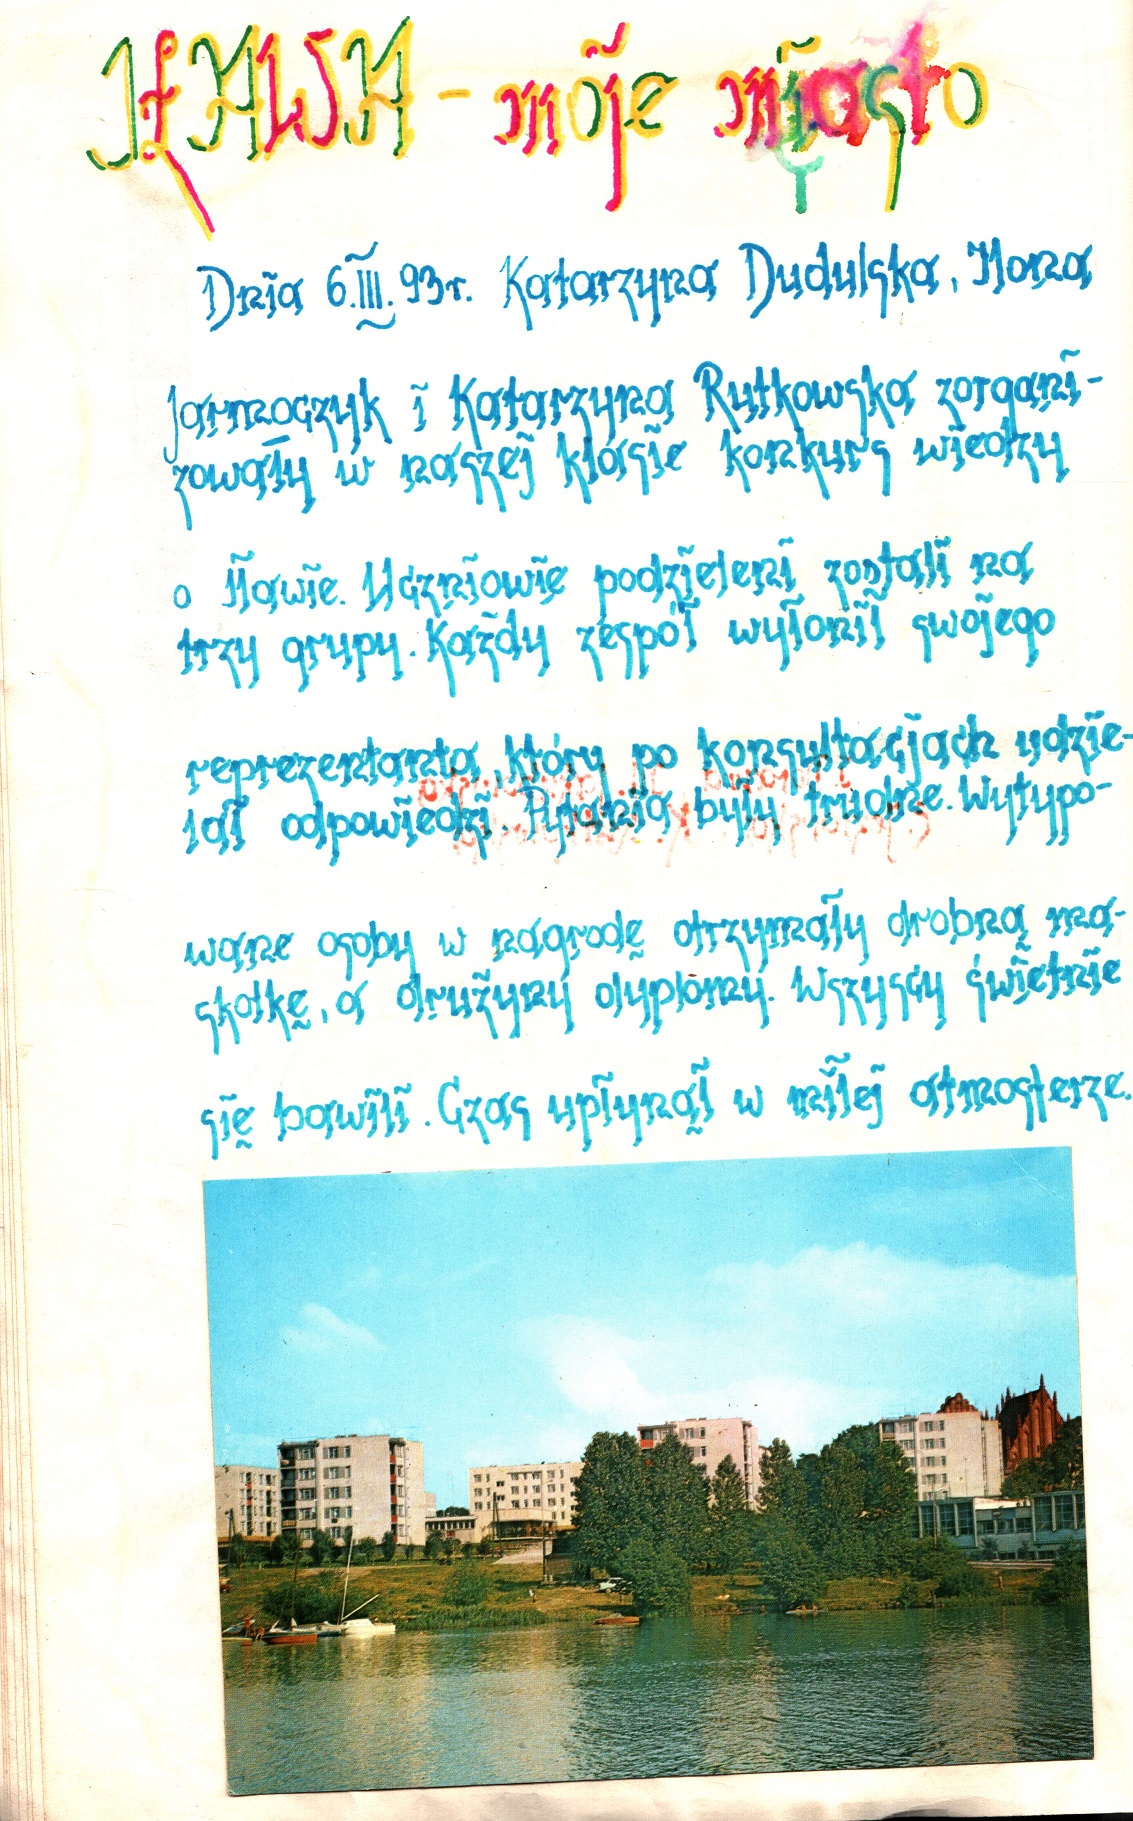 IŁAWA - moje miasto
Dnia 6.III.93r. Katarzyna Dudulska, Ilona
Jarmoczyk i Katarzyna Rutkowska zorgani-
zowały w naszej klasie konkurs wiedzy
o Iławie. Uczniowie podzieleni zostali na
trzy grupy. Każdy zespół wyłonił swojego
reprezentanta, który po konsultacjach udzie-
lał odpowiedzi. Pytania były trudne. Wytypo-
wane osoby w nagrodę otrzymały drobną ma-
skotkę, a drużyny dyplomy. Wszyscy świetnie
się bawili. Czas upłynął w miłej atmosferze.